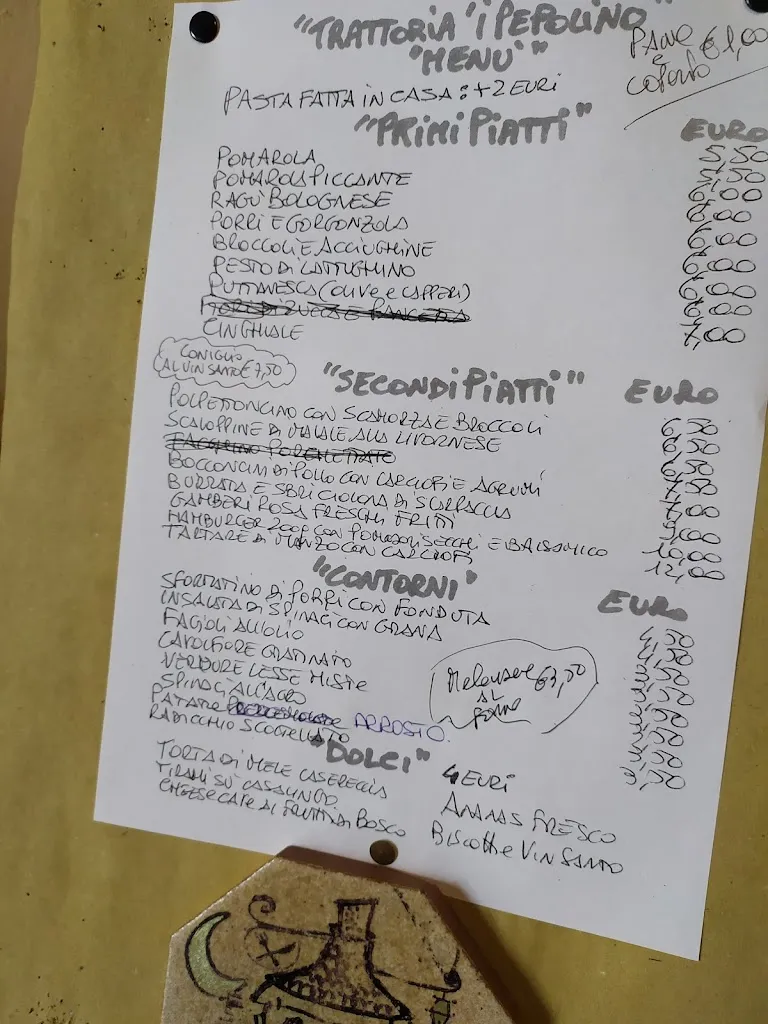 "TRATTORIA 'I PEPOLINO"
"MENÙ"
PANE € 1,00
E
COPERTO
PASTA FATTA IN CASA: +2 EURI
"PRIMI PIATTI" EURO
POMAROLA 5,50
POMAROLA PICCANTE 5,50
RAGÙ BOLOGNESE 6,00
PORRI E GORGONZOLA 6,00
BROCCOLI E ACCIUGHINE 6,00
PESTO DI LATTUGHINO 6,00
PUTTANESCA (OLIVE E CAPPERI) 6,00
6,00
CINGHIALE 7,00
CONIGLIO
AL VINSANTO € 7,50
"SECONDI PIATTI" EURO
POLPETTONCINO CON SCAMORZA E BROCCOLI 6,50
SCALOPPINE DI MAIALE ALLA LIVORNESE 6,50
6,50
BOCCONCINI DI POLLO CON CARCIOFI E AGRUMI 7,00
BURRATA E SBRICIOLONA DI SCARPACCIA
GAMBERI ROSA FRESCHI FRITTI 9,00
HAMBURGER 200g CON POMODORI SECCHI E BALSAMICO 10,00
TARTARE DI MANZO CON CARCIOFI 12,00
"CONTORNI" EURO
SFORMATINO DI PORRI CON FONDUTA 4,50
INSALATA DI SPINACI CON GRANA
FAGIOLI ALL'OLIO
CAVOLFIORE GRATINATO
VERDURE LESSE MISTE
SPINACI ALL'AGRO
PATATE ARROSTO.
RADICCHIO SCOTTELLATO
Melanzane € 3,50
AL
forno
"DOLCI" 4 EURI
TORTA DI MELE CASERECCIA
TIRAMI SÙ CASALINGO
CHEESE CAKE AI FRUTTI DI BOSCO
ANANAS FRESCO
BISCOTTI e VIN SANTO